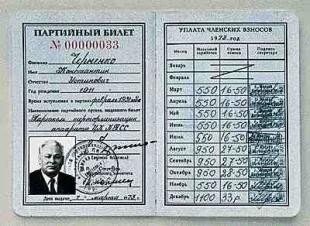 ПАРТИЙНЫЙ БИЛЕТ
№ 00000033
Фамилия Черненко
Имя Константин
Отчество Устинович
Год рождения 1911
Время вступления в партию февраль 1931 года
Наименование партийного органа, выдавшего билет
Парткомом
аппарата ЦК КПСС
Дата выдачи 7 марта
УПЛАТА ЧЛЕНСКИХ ВЗНОСОВ
1973 год
Месяц
Месячный заработок
Сумма взноса
Подпись секретаря
Январь
Февраль
Март 550 16-50
Апрель 550 16-50
Май 550 16-50
Июнь 550 16-50
Июль 550 16-50
Август 950 27-50
Сентябрь 950 27-50
Октябрь 950 28-50
Ноябрь 550 16-50
Декабрь 1100 33р.